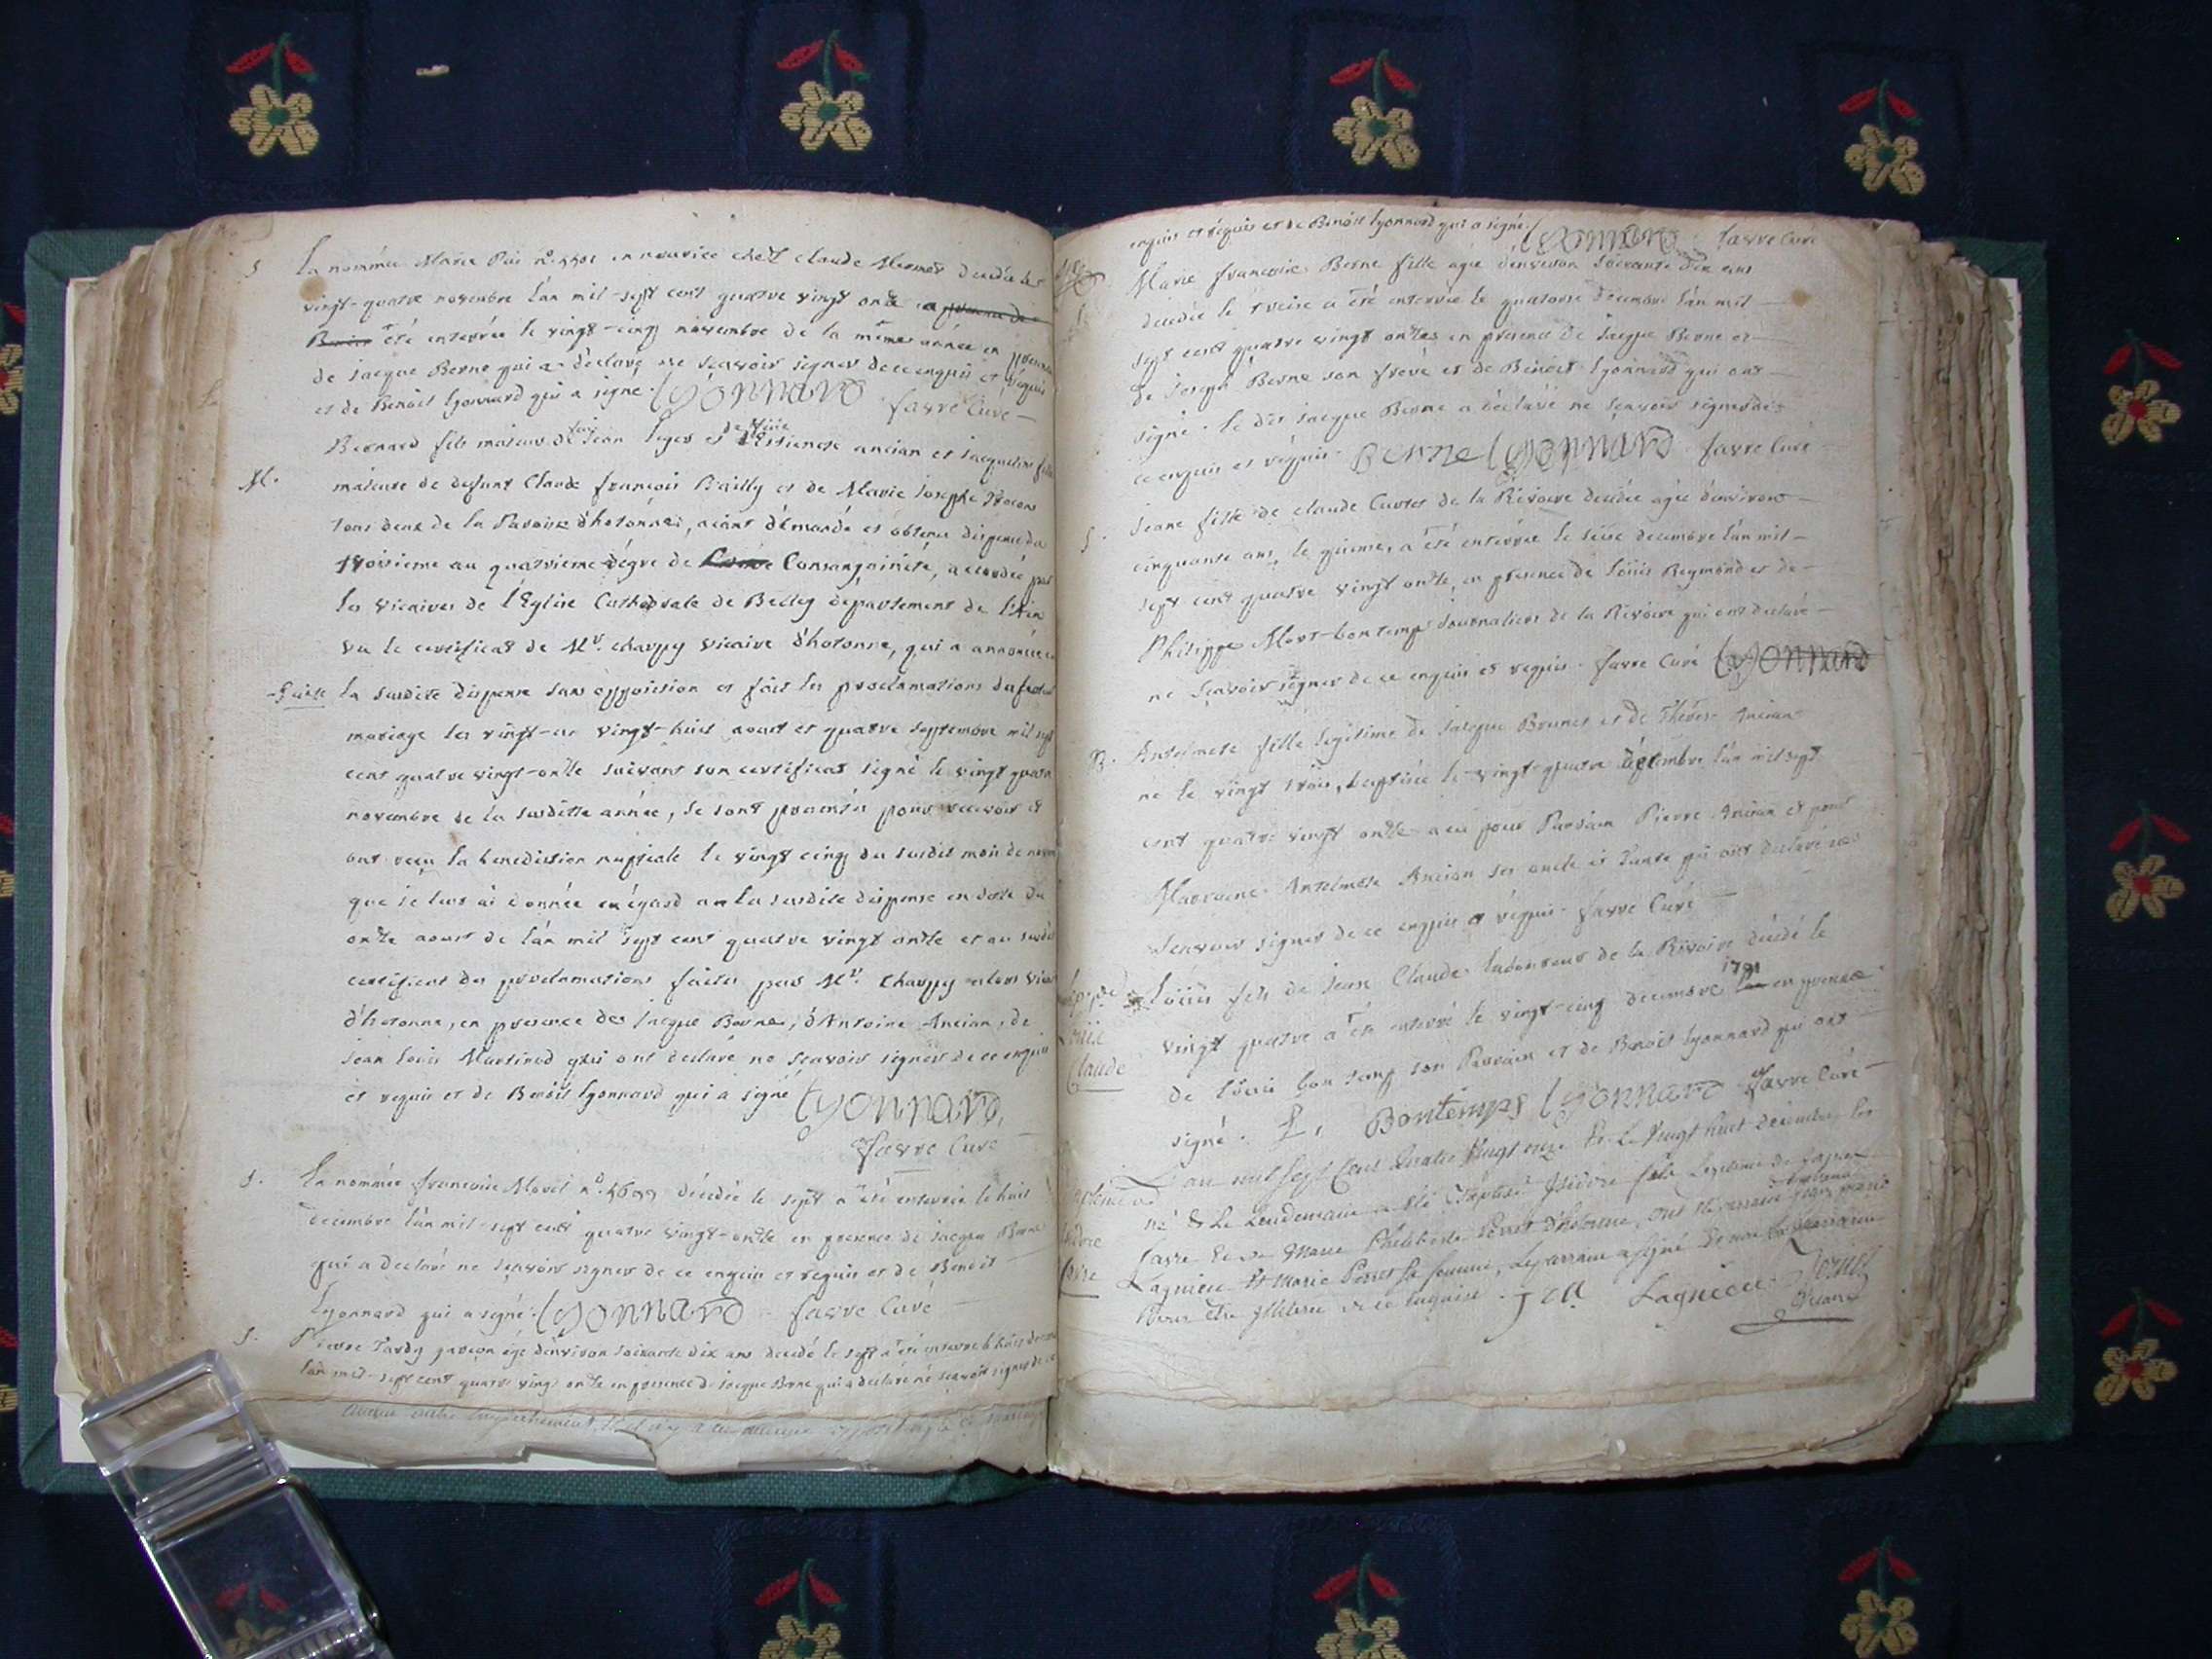 S
La nommée Marie Pie n°. en nourrice chez Claude Mermet décédée le
vingt-quatre novembre l'an mil-sept cent quatre vingt onze a
été enterrée le vingt-cinq novembre de la même année en présence
de Jacque Berne qui a déclaré ne scavoir signer de ce enquis et requis
et de Benoit Lyonnard qui a signé. Lyonnard favre Curé
M.
Bernard fils majeur de feu Jean et de Estienete ancian et Jacqueline fille
majeure de defunt Claude françois Bailly et de Marie Josephe
tous deux de la Paroisse d'hotonne, aiant démandé et obtenu dispense du
troisieme au quatrieme dégré de Consanguinité, accordée par
les vicaires de l'Eglise Cathedrale de Belley département de l'Ain
vu le certificat de Mr. charpy vicaire d'hotonne, qui a annoncé
la susdite dispense sans opposition et fait les proclamations du futur
mariage les vingt-un vingt-huit aout et quatre septembre mil sept
cent quatre vingt-onze suivant son certificat signé le vingt quatre
novembre de la susditte année, se sont presentés pour recevoir et
ont reçu la benediction nuptiale le vingt cinq du susdit mois de
que je leur ai donnée eu égard a la susdite dispense en datte du
onze aoust de l'an mil sept cent quatre vingt onze et au susdit
certificat des proclamations faites par Mr. Charpy alors
d'hotonne, en presence de Jacque Berne, d'Antoine Ancian, de
Jean Louis Martinod qui ont declaré ne scavoir signer de ce enquis
et requis et de Benoit Lyonnard qui a signé Lyonnard,
favre Curé
S.
La nommée françoise Morel n°. décédée le sept a été enterrée le huit
decembre l'an mil-sept cent quatre vingt-onze en presence de Jacque Berne
qui a declaré ne scavoir signer de ce enquis et requis et de Benoit
Lyonnard qui a signé. Lyonnard favre Curé
S.
Pierre Tardy garcon agé d'environ soixante dix ans decedé le sept a été enterré le huit
l'an mil-sept cent quatre vingt onze en presence de Jacque Berne qui a declaré ne scavoir signer de ce
enquis et réquis et de Benoit Lyonnard qui a signé. Lyonnard favre Curé
Marie françoise Berne fille agée d'environ soixante dix ans
décédée le treise a été enterrée le quatorse decembre l'an mil
sept cent quatre vingt onze en présence de Jacque Berne et
de Joseph Berne son frère et de Benoit Lyonnard qui ont
signé. le dit Jacque Berne a déclaré ne scavoir signer de
ce enquis et réquis. Berne Lyonnard favre Curé
S.
Jeane fille de claude Curtet de la Rivoire decédée agée d'environ
cinquante ans, le quinse, a été enterrée le seise decembre l'an mil
sept cent quatre vingt onze, en presence de Loüis Reymond et de
Philippe Mort-bontemps Journaliers de la Rivoire qui ont declaré
ne scavoir signer de ce enquis et requis. favre Curé Lyonnard
B.
Antelmete fille legitime de Jacque Brunet et de Thérèse Ancian
née le vingt trois, baptisée le vingt-quatre décembre l'an mil sept
cent quatre vingt onze a eu pour Parrain Pierre Ancian et pour
Marraine Antelmete Ancian ses oncle et tante qui ont declaré ne
scavoir signer de ce enquis et réquis. favre Curé
Loüis
Claude
Loüis fils de Jean Claude laboureur de la Rivoire décédé le
vingt quatre a été enterré le vingt-cinq decembre 1791 en presence
de Loüis bon temps son Parrain et de Benoit Lyonnard qui ont
signé. L. Bontemps Lyonnard favre Curé
L'an mil sept Cent Quatre Vingt onze et le Vingt huit decembre
né & Le Lendemain a été Baptisé Isidore fils Légitime de
favre Et de Marie Philiberte Perret d'hotonne,
Lagnieu Et Marie Perret sa femme, Le parrain a signé Et non la Marraine
Pour être Illiterée de ce enquise. Lagnieu